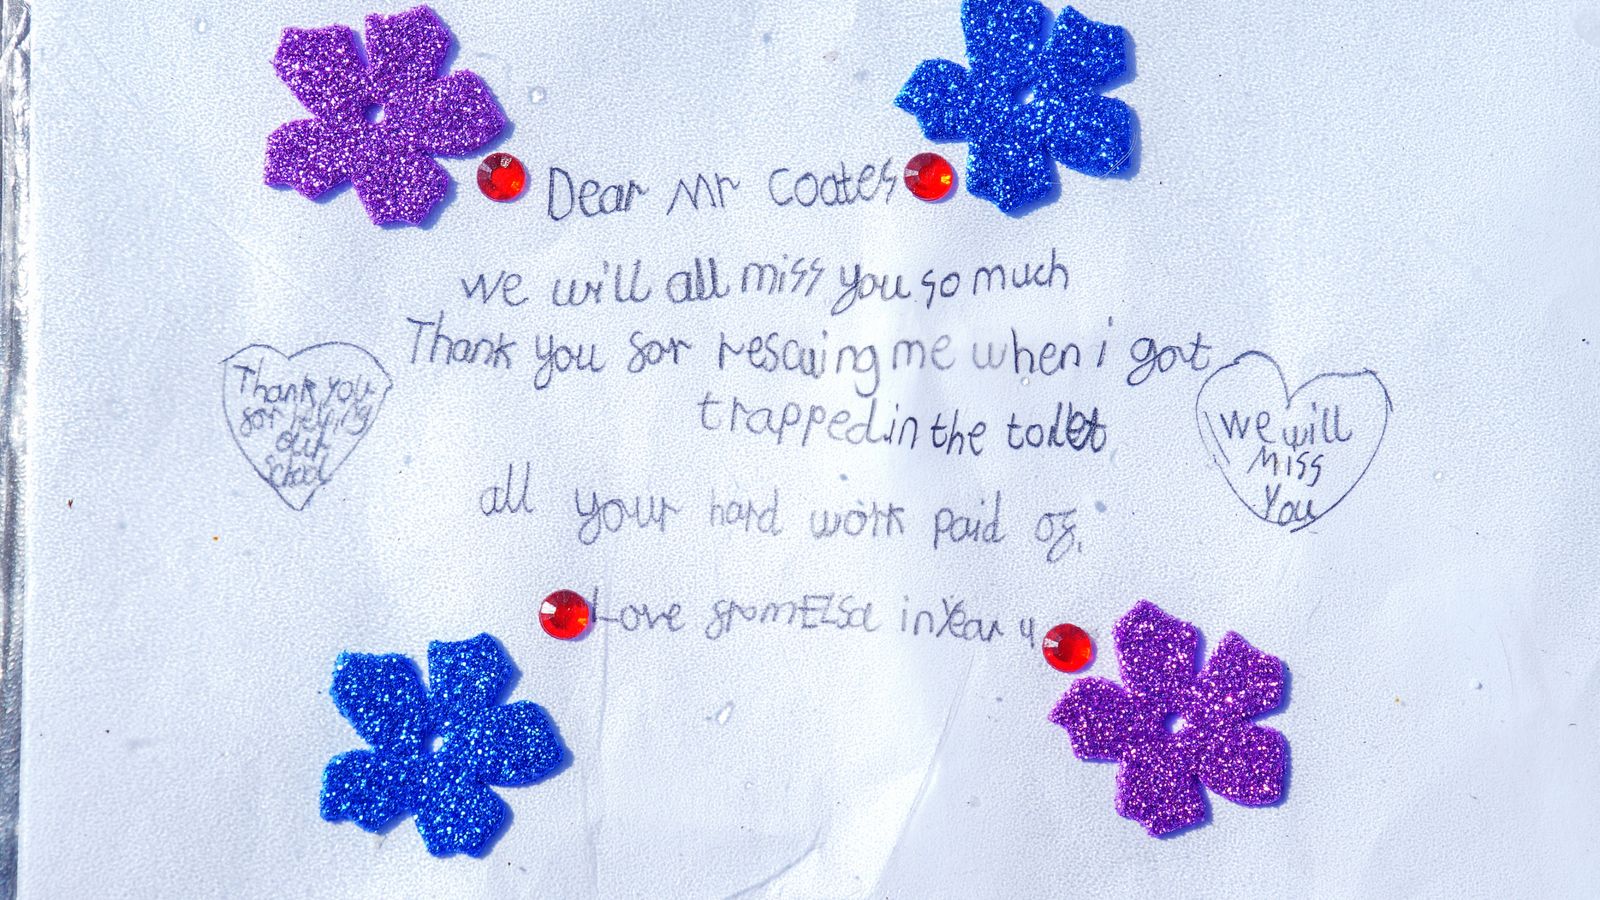 Dear Mr Coates
we will all miss you so much
Thank you for rescuing me when i got
trapped in the toilet
all your hard work paid of.
Love from Elsa in Year 4
Thank you
for
our
school
we will
Miss
You